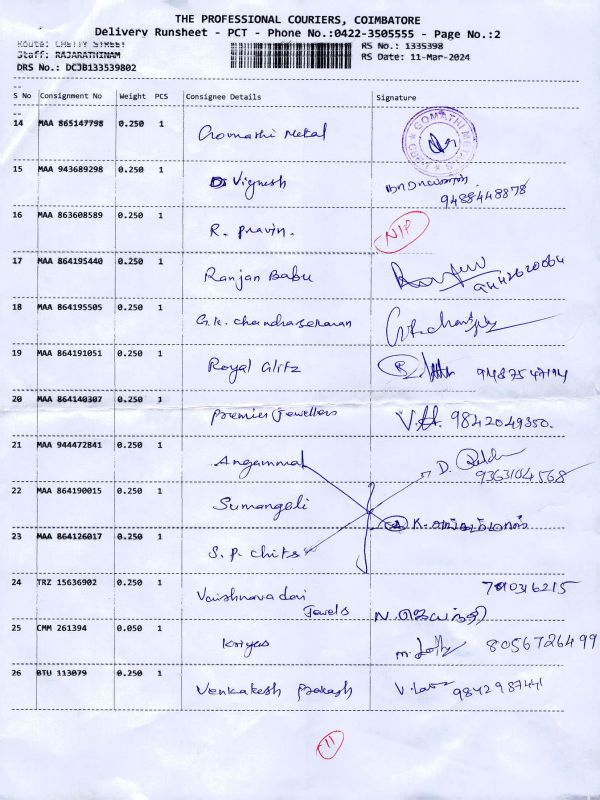 THE PROFESSIONAL COURIERS, COIMBATORE
Delivery Runsheet - PCT - Phone No.:0422-3505555 - Page No.:2
Route: CHETTY STREET RS No.: 1335398
Staff: RAJARATHINAM RS Date: 11-Mar-2024
DRS No.: DCJB133539802
S No Consignment No Weight PCS Consignee Details Signature
14 MAA 865147798 0.250 1 Gomathi Metal GOMATHI
15 MAA 943689298 0.250 1 D. Vignesh
9488448878
16 MAA 863608589 0.250 1 R. pravin. NIP
17 MAA 864195440 0.250 1 Ranjan Babu 9442620064
18 MAA 864195505 0.250 1 G.K. chandrasekaran
19 MAA 864191051 0.250 1 Royal Glitz
20 MAA 864140307 0.250 1 premier Jewellers 9842049350.
21 MAA 944472841 0.250 1 Angammal D.
9363104568
22 MAA 864190015 0.250 1 Sumangali
K.
23 MAA 864126017 0.250 1 S.P. chits
24 TRZ 15636902 0.250 1 Vaishnava devi
Jewels
25 CMM 261394 0.050 1 8056726499
26 BTU 113079 0.250 1 Venkatesh prakash 9842987441
11